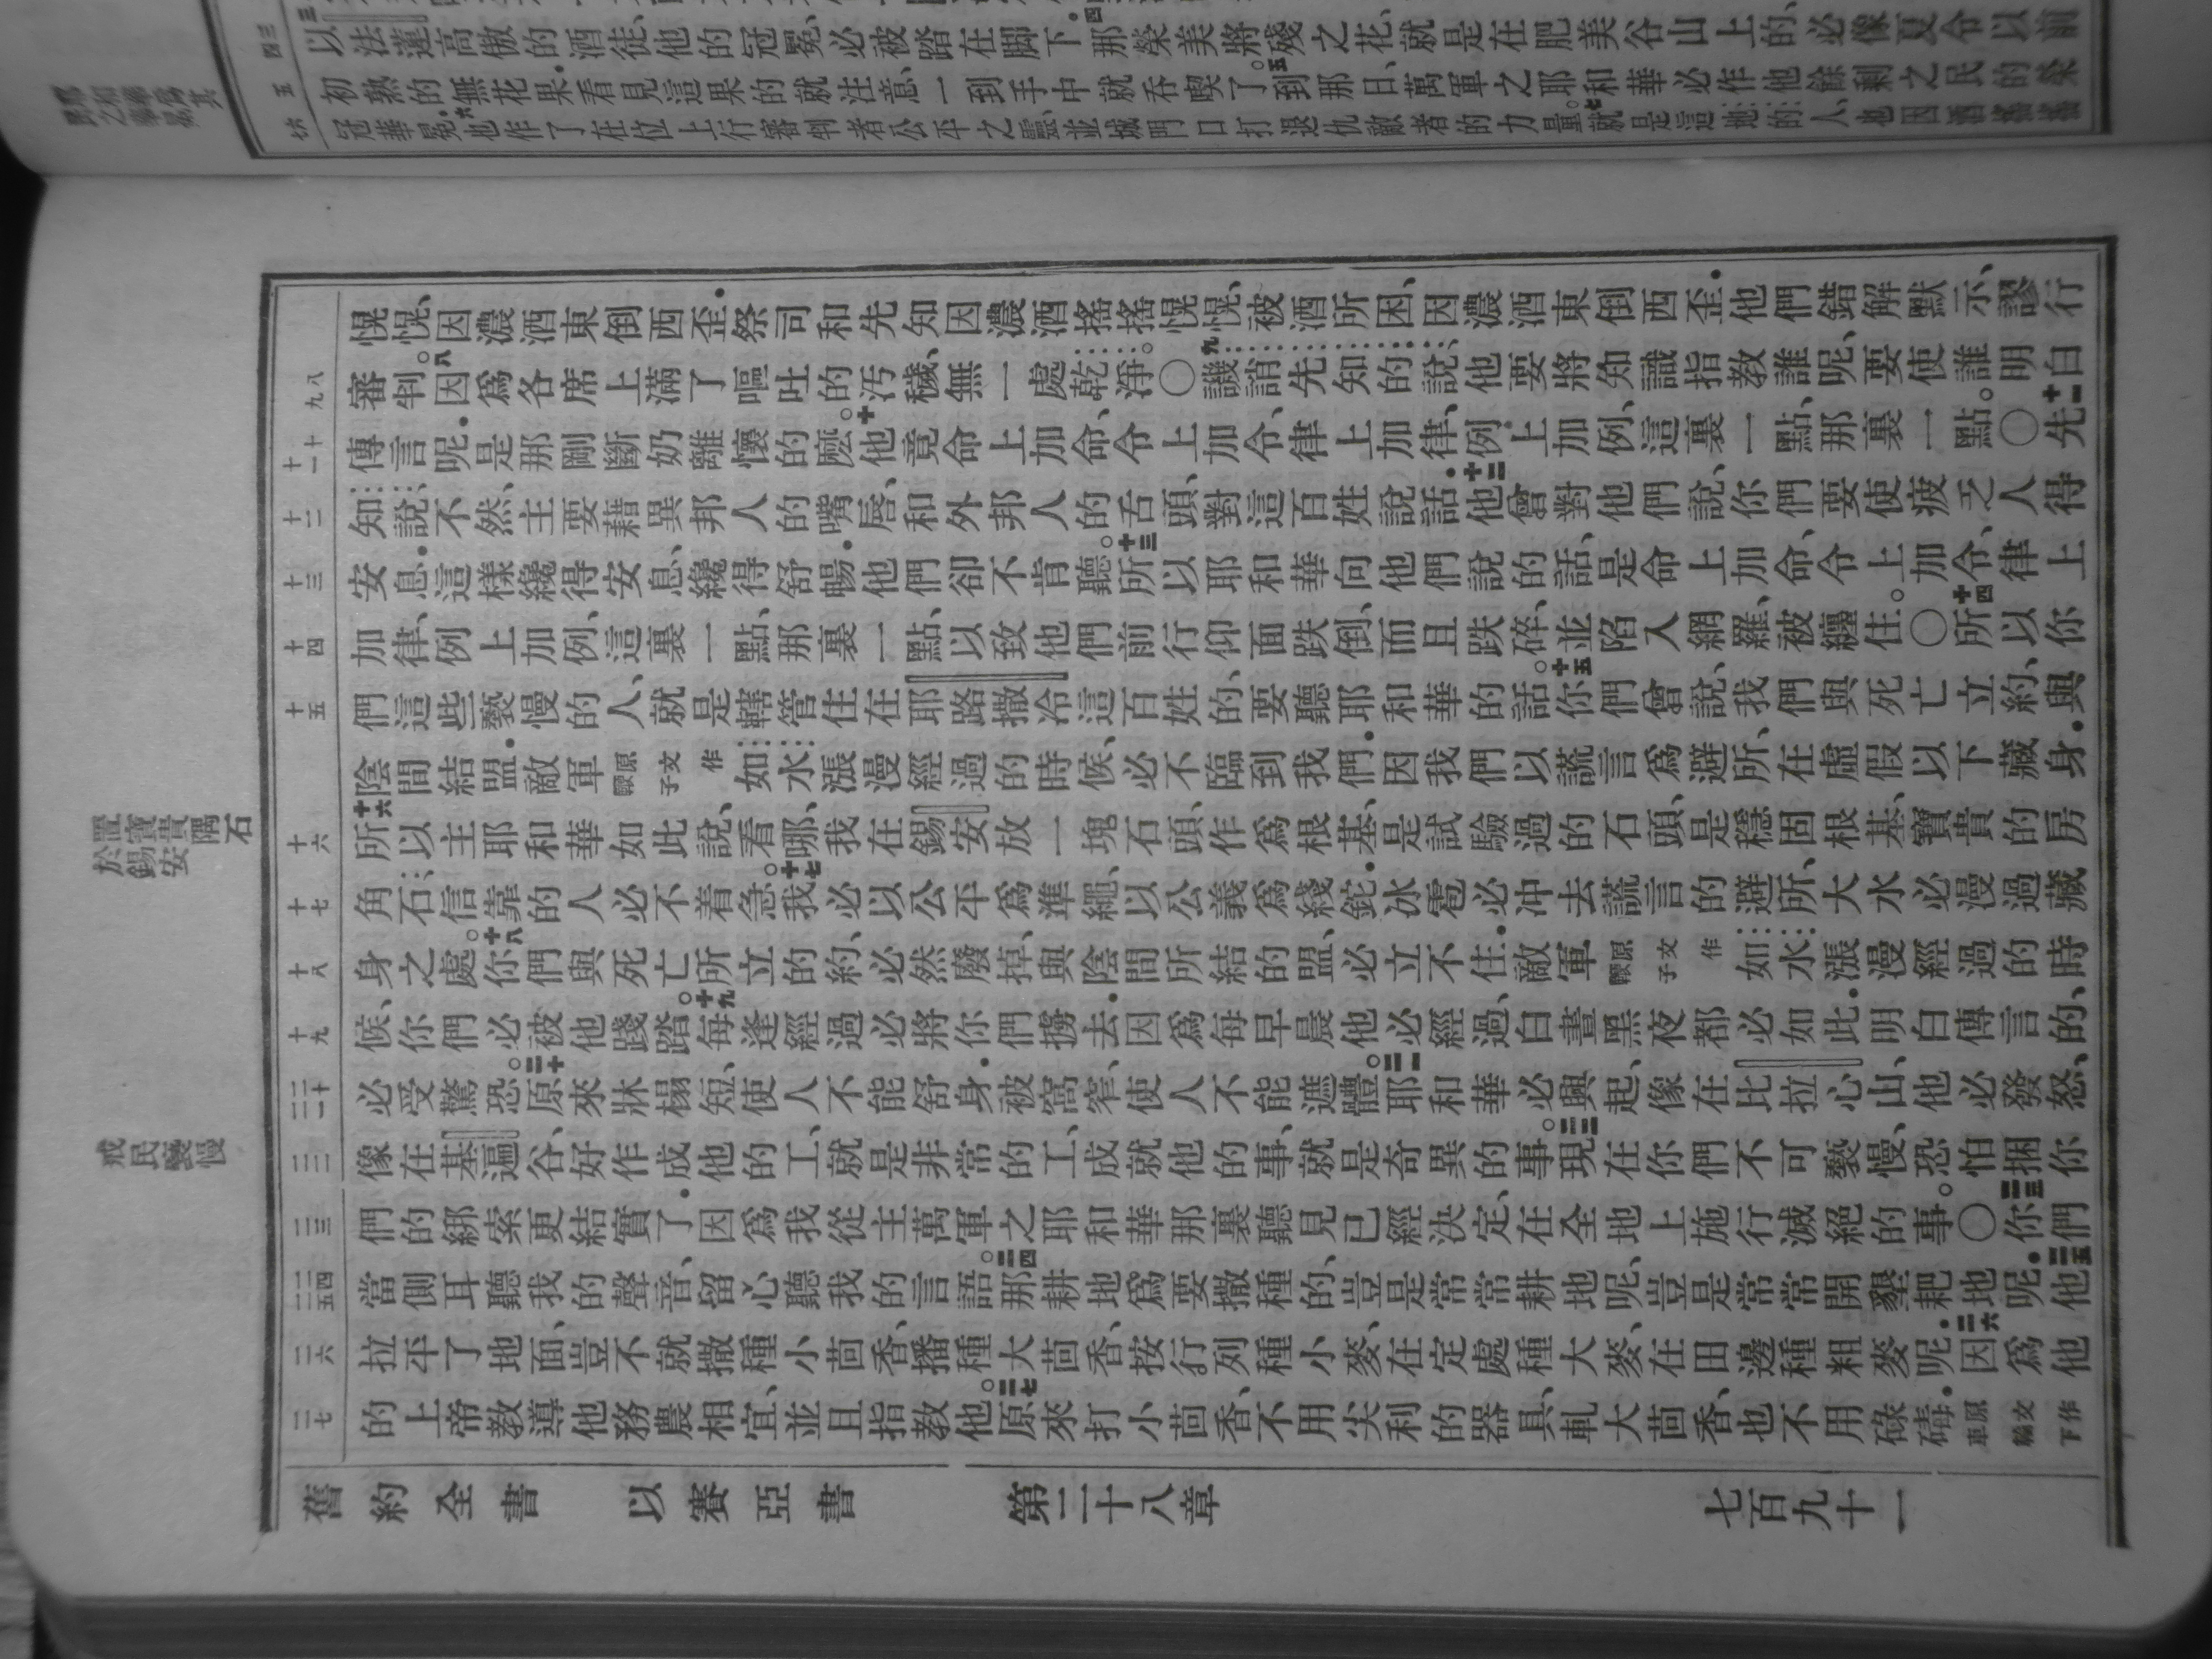 以法蓮高傲的酒徒、他的冠冕、必被踏在脚下。四那榮美將殘之花、就是在肥美谷山上的、必像夏令以前
初熟的無花果。看見這果的就注意、一到手中就吞喫了。五到那日、萬軍之耶和華必作他餘剩之民的榮
冠華冕。六也作了在位上行審判者公平之靈、並城門口打退仇敵者的力量。七就是這地的人、也因酒搖搖
愰愰、因濃酒東倒西歪．祭司和先知因濃酒搖搖愰愰、被酒所困、因濃酒東倒西歪．他們錯解默示、謬行
審判。八因爲各席上滿了嘔吐的汚穢、無一處乾淨。〇九譏誚先知的說、他要將知識指教誰呢、要使誰明白
傳言呢．是那剛斷奶離懷的麽。十他竟命上加命、令上加令、律上加律、例上加例、這裏一點、那裏一點。〇十一先
知說、不然、主要藉異邦人的嘴唇、和外邦人的舌頭、對這百姓說話．十二他曾對他們說、你們要使疲乏人得
安息．這樣纔得安息、纔得舒暢．他們卻不肯聽。十三所以耶和華向他們說的話、是命上加命、令上加令、律上
加律、例上加例、這裏一點、那裏一點、以致他們前行仰面跌倒、而且跌碎、並陷入網羅、被纏住。〇十四所以你
們這些褻慢的人、就是轄管住在耶路撒冷這百姓的、要聽耶和華的話。十五你們曾說、我們與死亡立約、與
陰間結盟．敵軍原文作鞭子如水漲漫經過的時候、必不臨到我們．因我們以謊言爲避所、在虛假以下藏身．
十六所以主耶和華如此說、看哪、我在錫安放一塊石頭、作爲根基、是試驗過的石頭、是穩固根基、寶貴的房
角石、信靠的人必不着急。十七我必以公平爲準繩、以公義爲綫鉈．冰雹必冲去謊言的避所、大水必漫過藏
身之處。十八你們與死亡所立的約、必然廢掉、與陰間所結的盟、必立不住．敵軍原文作鞭子如水漲漫經過的時
候、你們必被他踐踏。十九每逢經過必將你們擄去．因爲每早晨他必經過、白晝黑夜都必如此．明白傳言的、
必受驚恐。二十原來牀榻短、使人不能舒身．被窩窄、使人不能遮體。二一耶和華必興起、像在比拉心山、他必發怒、
像在基遍谷、好作成他的工、就是非常的工、成就他的事、就是奇異的事。二二現在你們不可褻慢、恐怕捆你
們的綁索更結實了．因爲我從主萬軍之耶和華那裏聽見、已經決定、在全地上施行滅絕的事。〇二三你們
當側耳聽我的聲音、留心聽我的言語。二四那耕地爲要撒種的、豈是常常耕地呢、豈是常常開墾耙地呢．二五他
拉平了地面、豈不就撒種小茴香、播種大茴香、按行列種小麥、在定處種大麥、在田邊種粗麥呢．二六因爲他
的上帝教導他務農相宜、並且指教他。二七原來打小茴香、不用尖利的器具、軋大茴香、也不用碌碡．原文作車輪下
舊約全書　以賽亞書　第二十八章　七百九十一
置寶貴隅石
於錫安
戒民褻慢